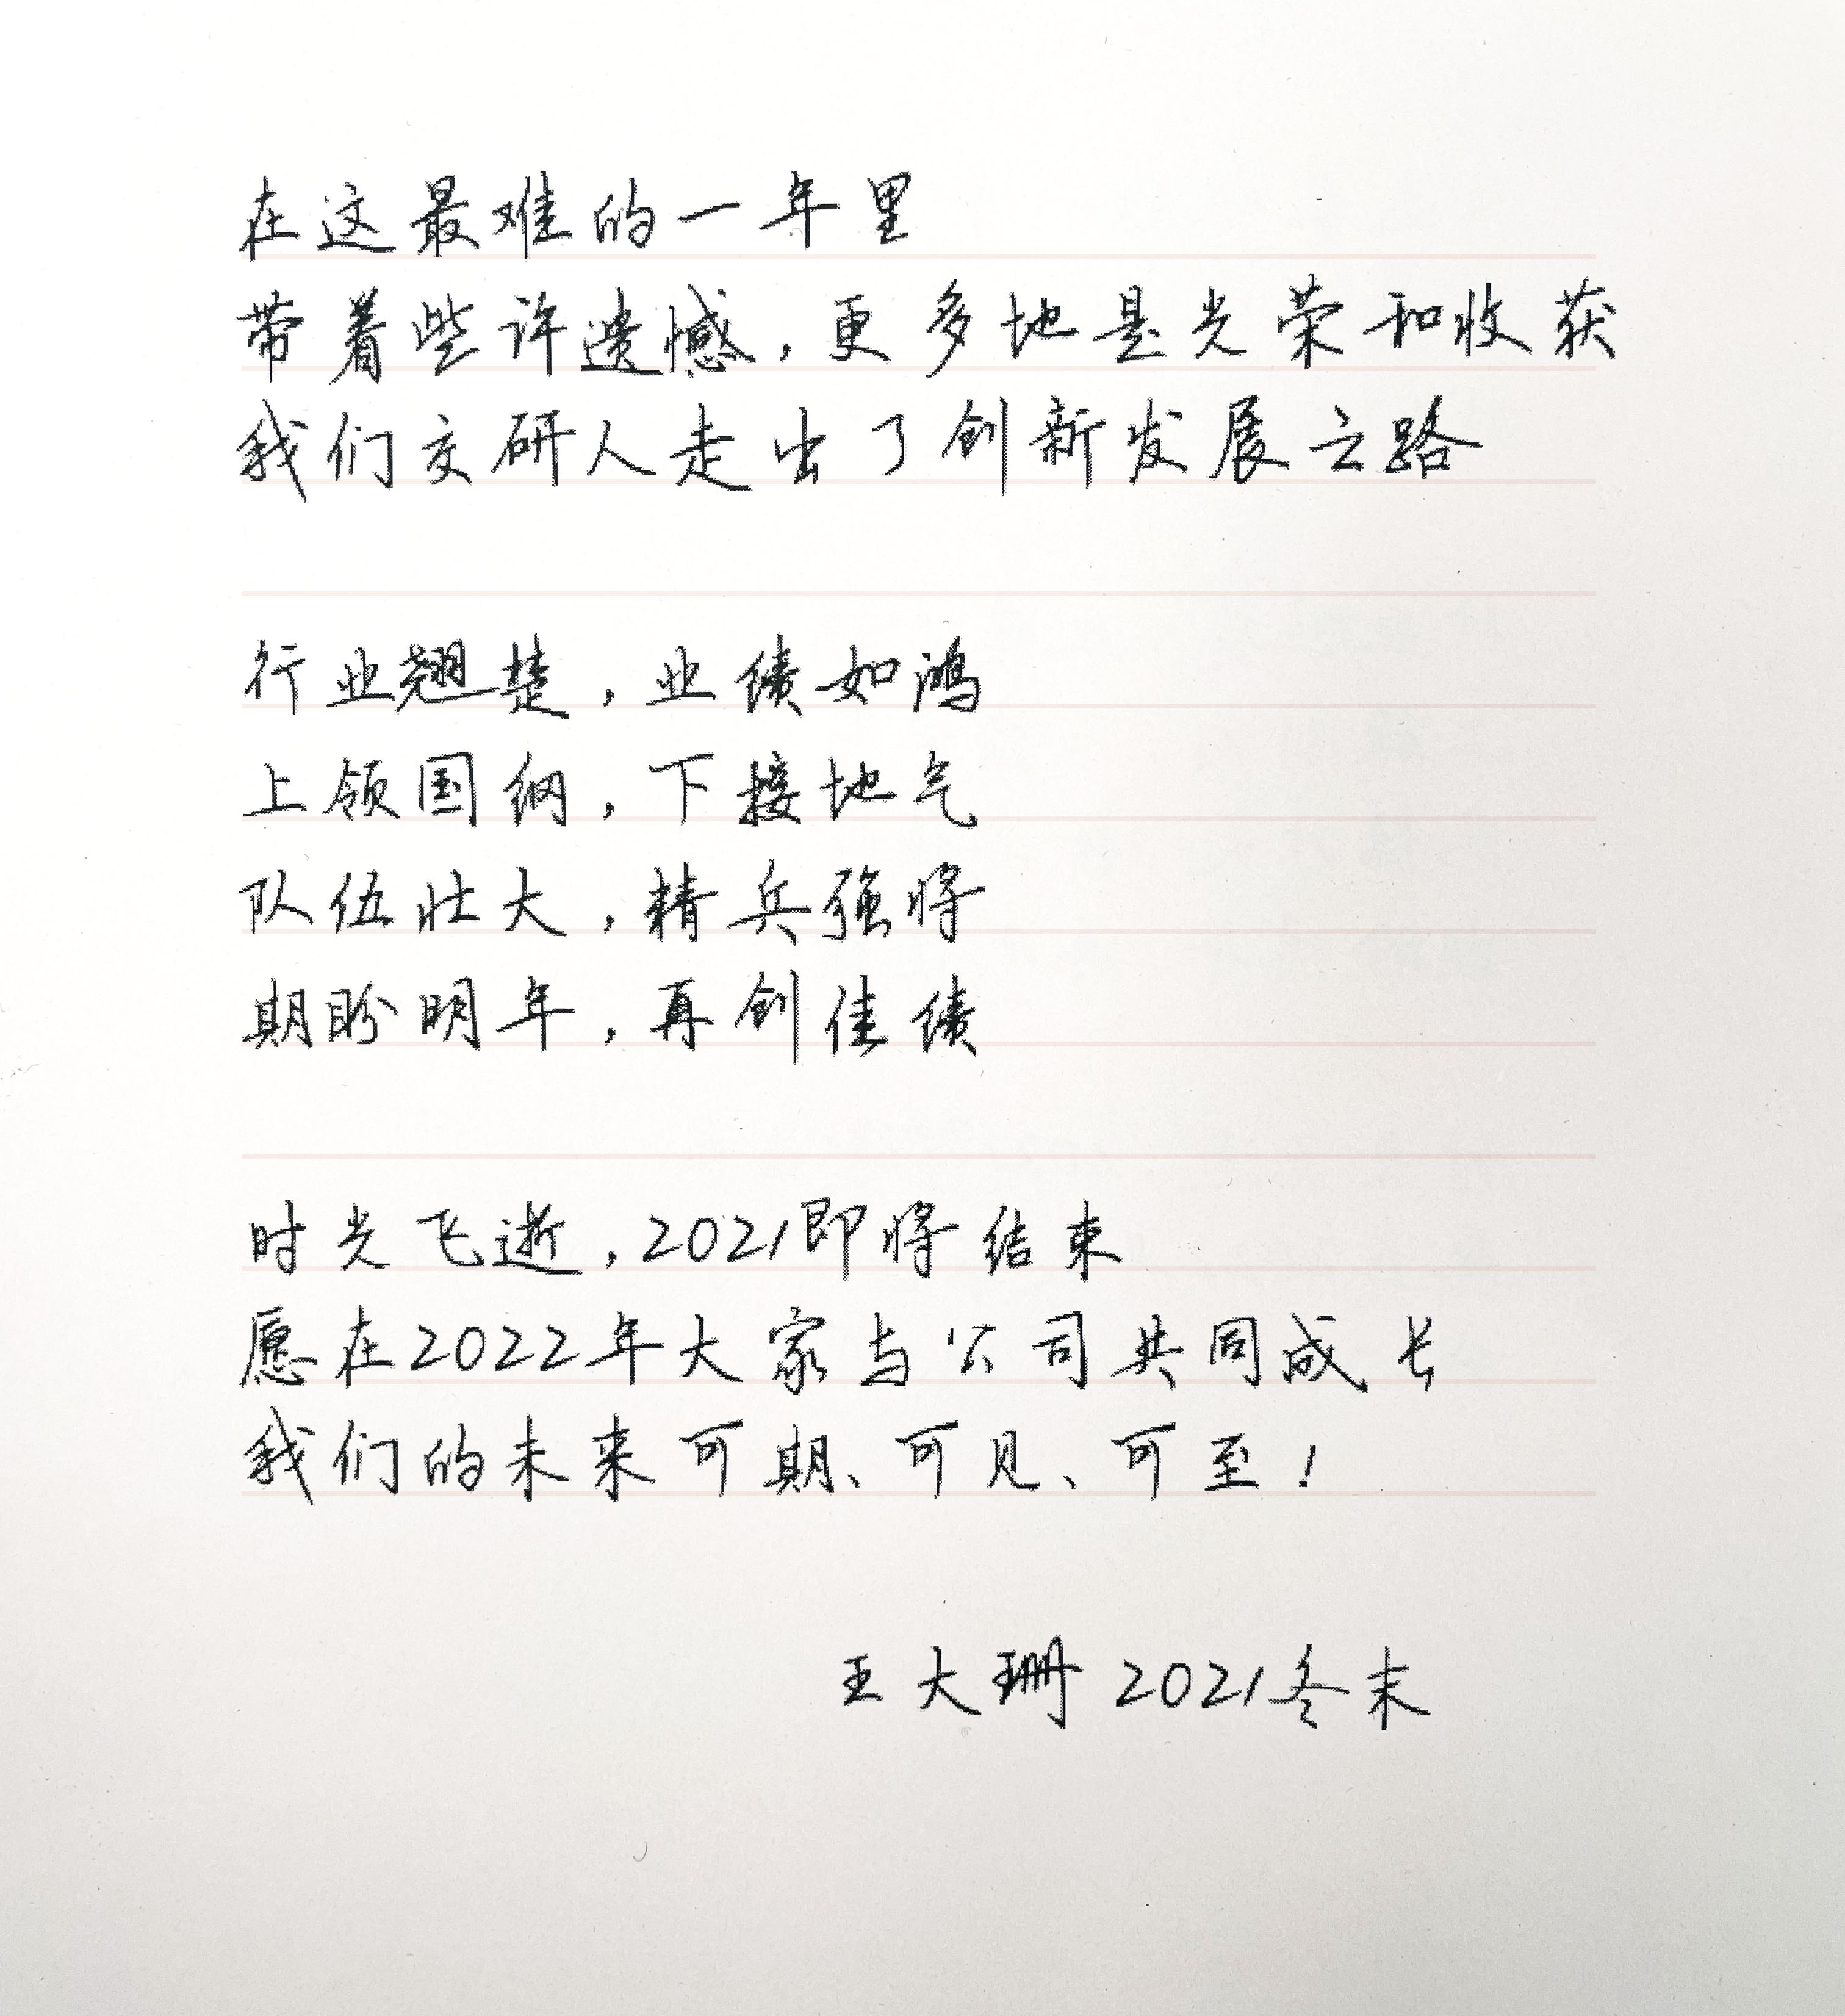 在这最难的一年里
带着些许遗憾，更多地是光荣和收获
我们交研人走出了创新发展之路
行业翘楚，业绩如鸿
上领国纲，下接地气
队伍壮大，精兵强将
期盼明年，再创佳绩
时光飞逝，2021即将结束
愿在2022年大家与公司共同成长
我们的未来可期、可见、可至！
王大珊 2021冬末